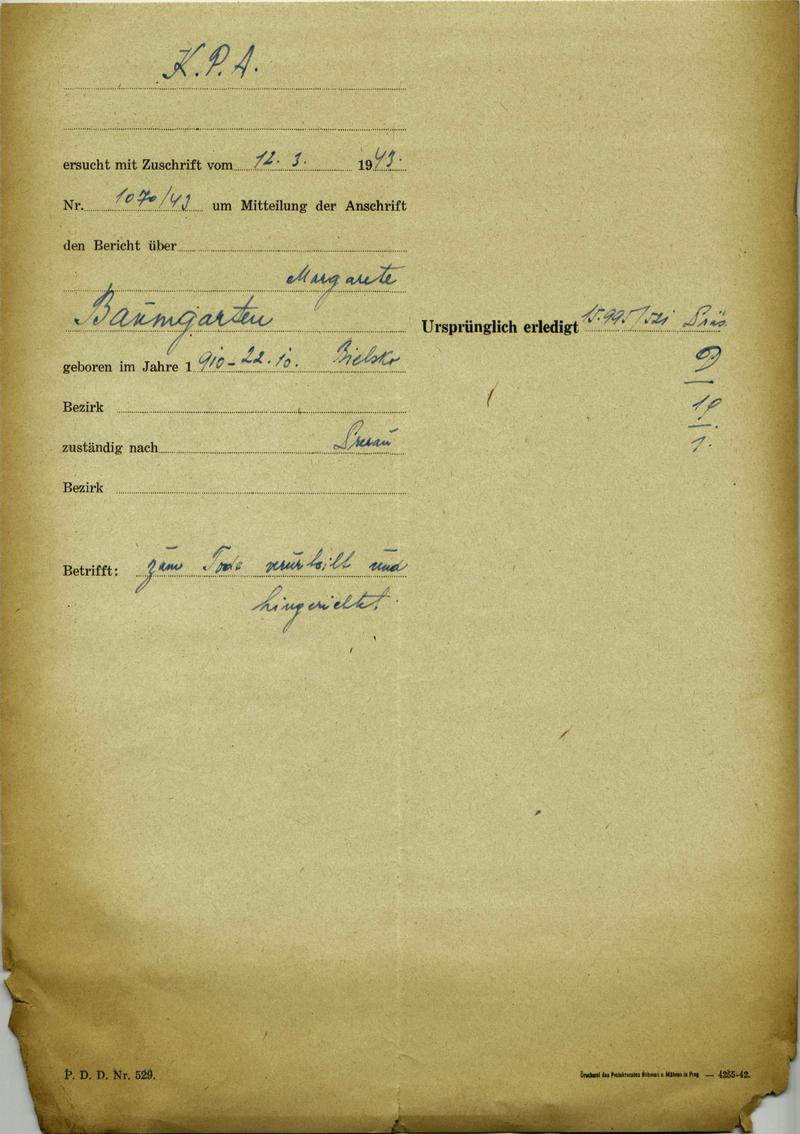 K. P. A.
ersucht mit Zuschrift vom 12. 3. 1943.
Nr. 1070/43 um Mitteilung der Anschrift
den Bericht über
Margarete
Baumgarten
Ursprünglich erledigt 15.995/521
geboren im Jahre 1 910 - 22. 10. Bielsko
Bezirk
19
zuständig nach
1.
Bezirk
Betrifft: zum Tode verurteilt und
hingerichtet.
P. D. D. Nr. 529.
Druckerei des Protektorates Böhmen u. Mähren in Prag — 4255-42.